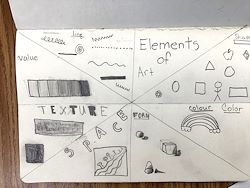 Line
Value
Elements
of
Art
Shape
TEXTURE
SPACE
FORM
colour Color